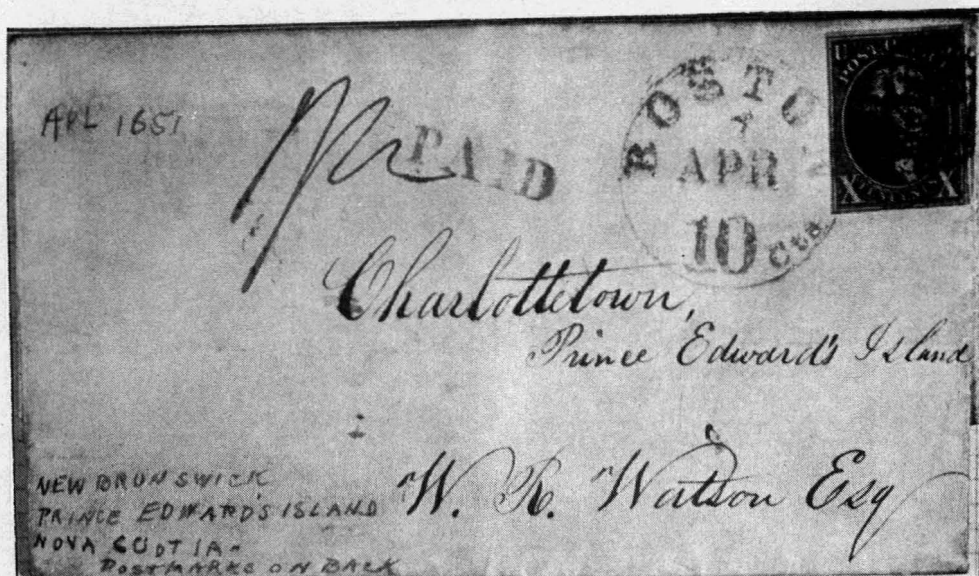 APL 1651
PAID
BOSTON
7
APR
10 Cts
POST OFFICE
X X
Charlottetown,
Prince Edward's Island
W. R. Watson Esq
NEW BRUNSWICK
PRINCE EDWARD'S ISLAND
NOVA SCOTIA -
POSTMARKS ON BACK